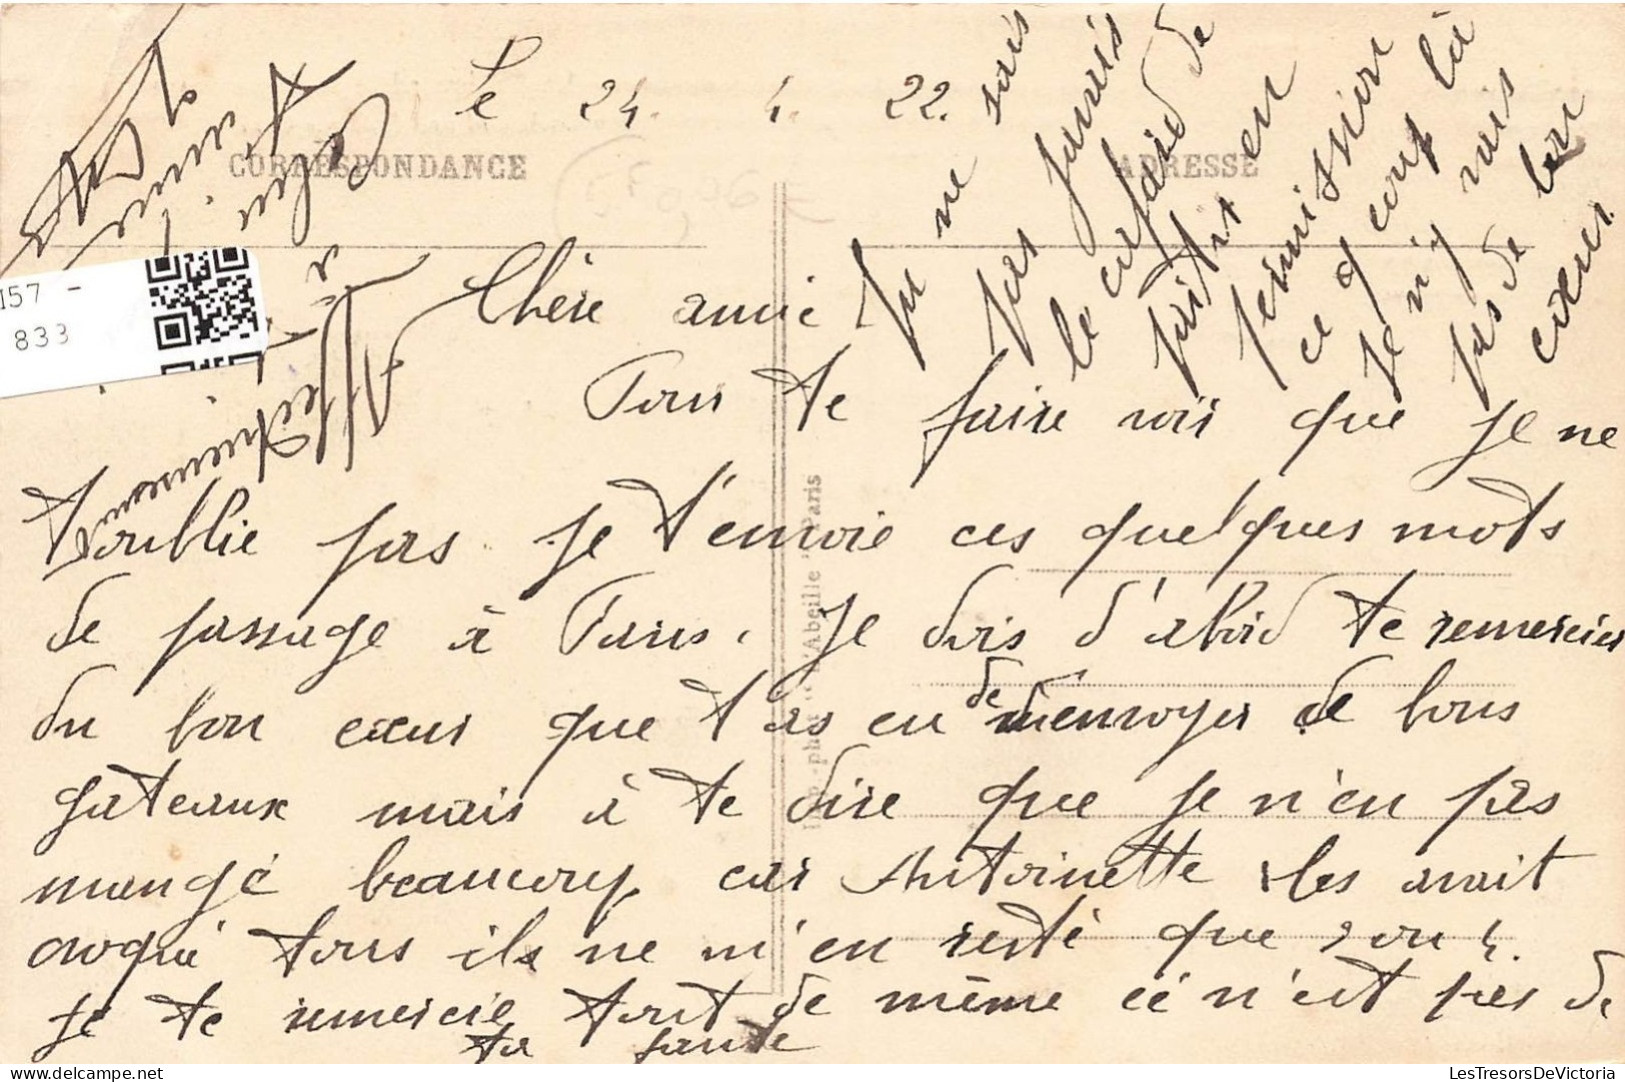 Le 24. 4. 22.
CORRESPONDANCE
ADRESSE
Chère amie
Pour te faire voir que je ne
t'oublie pas je t'envoie ces quelques mots
de passage à Paris. Je dois d'abord te remercier
du bon cœur que t'as eu de m'envoyer de bons
gateaux mais à te dire que je n'en pas
mangé beaucoup car Antoinette les avait
croqué tous ils ne m'en resté que 2 ou 4.
je te remercie tout de même ce n'est pas de
ta faute
Tu ne sais
pas jamais
le cafard de
partir en
permission
ce coup là
je n'y vais
pas de bon
cœur
Abeille Paris
157 -
833
LesTresorsDeVictoria